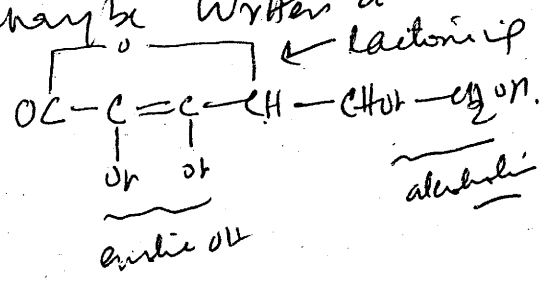 may be written a
O
Lactonic
OC – C = C – CH – CHOH – CH2OH.
OH OH
alcoholic
enolic OH